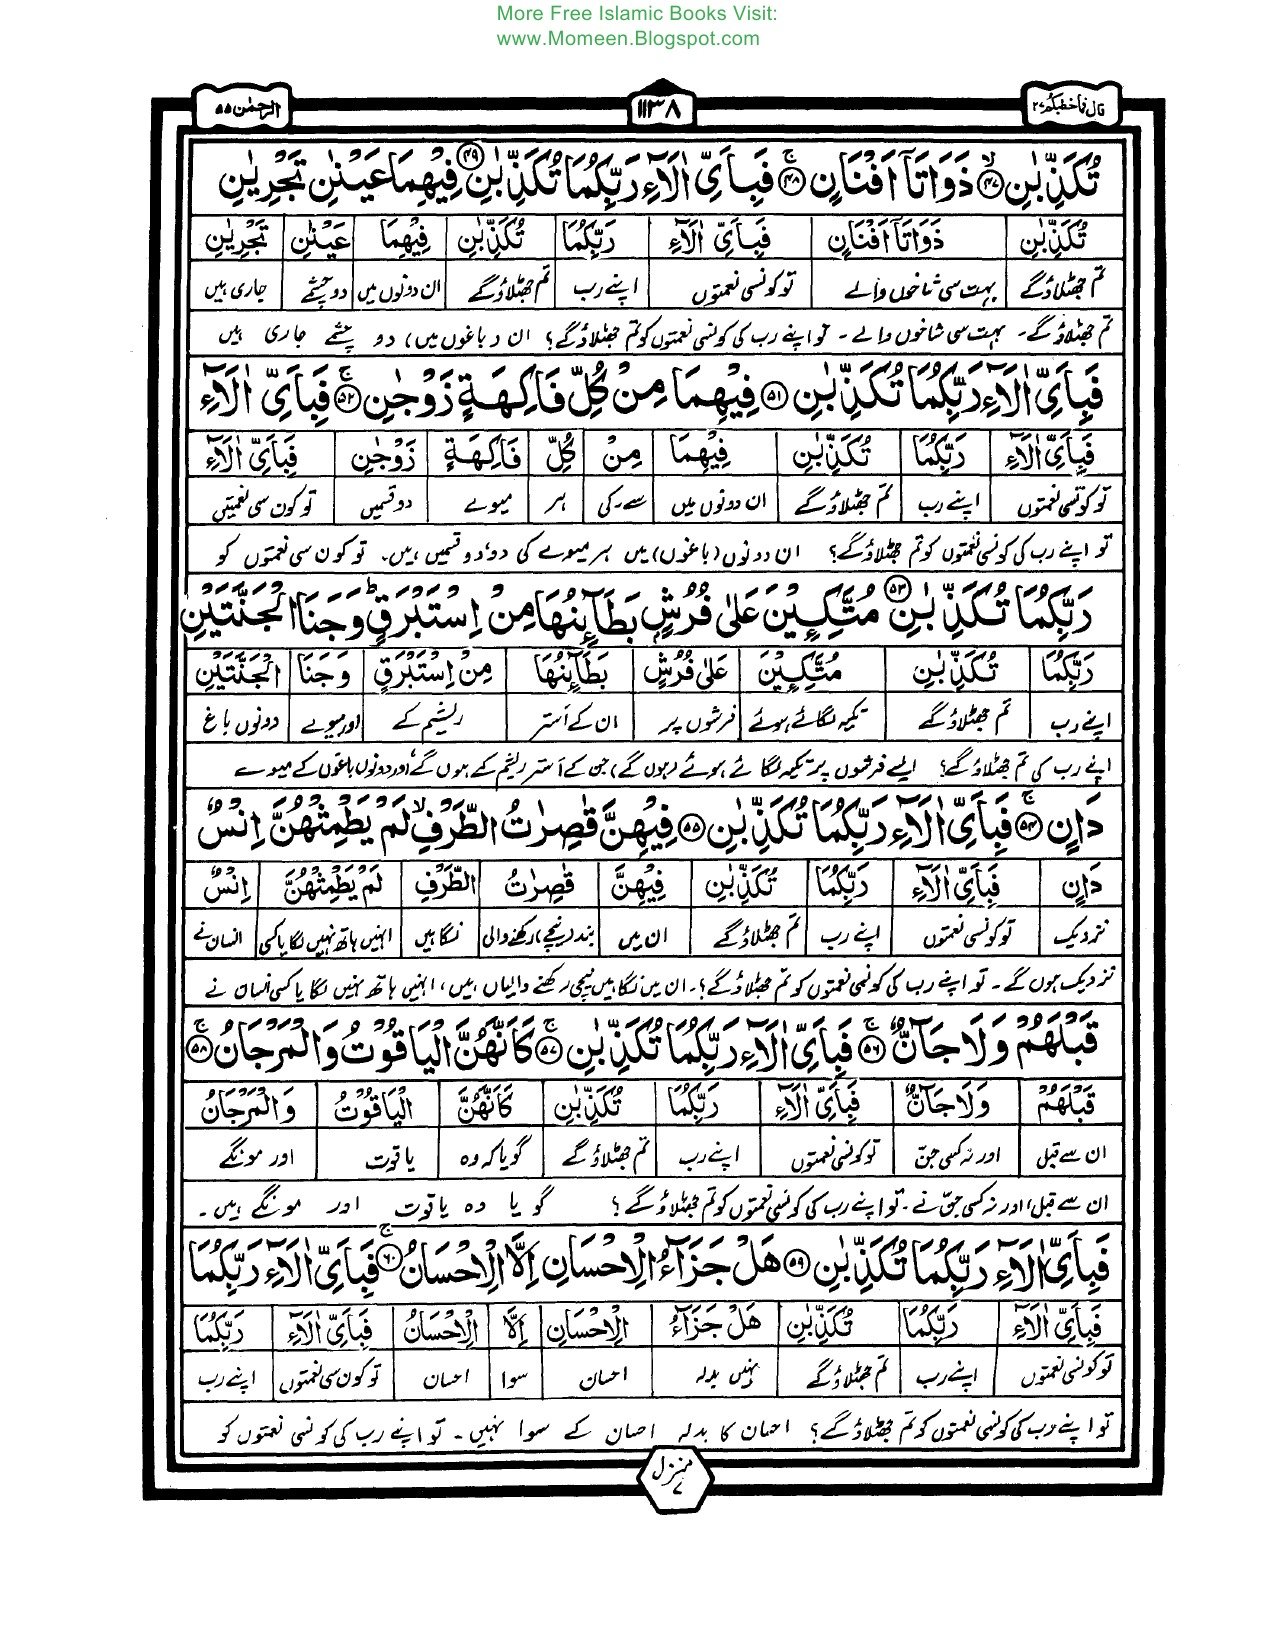 More Free Islamic Books Visit:
www.Momeen.Blogspot.com
قال فما خطبكم ۲۷
۱۱۳۸
الرحمٰن ۵۵
تُكَذِّبٰنِ ۴۷ ذَوَاتَاۤ اَفْنَانٍ ۴۸ فَبِاَىِّ اٰلَآءِ رَبِّكُمَا تُكَذِّبٰنِ ۴۹ فِيْهِمَا عَيْنٰنِ تَجْرِيٰنِ
تُكَذِّبٰنِ ذَوَاتَاۤ اَفْنَانٍ فَبِاَىِّ اٰلَآءِ رَبِّكُمَا تُكَذِّبٰنِ فِيْهِمَا عَيْنٰنِ تَجْرِيٰنِ
تم جھٹلاؤگے بہت سی شاخوں والے تو کونسی نعمتوں اپنے رب تم جھٹلاؤگے ان دونوں میں دو چشمے جاری ہیں
تم جھٹلاؤ گے۔ بہت سی شاخوں والے ۔ تو اپنے رب کی کونسی نعمتوں کو تم جھٹلاؤ گے؟ ان (باغوں میں) دو چشمے جاری ہیں
فَبِاَىِّ اٰلَآءِ رَبِّكُمَا تُكَذِّبٰنِ ۵۱ فِيْهِمَا مِنْ كُلِّ فَاكِهَةٍ زَوْجٰنِ ۵۲ فَبِاَىِّ اٰلَآءِ
فَبِاَىِّ اٰلَآءِ رَبِّكُمَا تُكَذِّبٰنِ فِيْهِمَا مِنْ كُلِّ فَاكِهَةٍ زَوْجٰنِ فَبِاَىِّ اٰلَآءِ
تو کونسی نعمتوں اپنے رب تم جھٹلاؤگے ان دونوں میں سے۔کی ہر میوے دو قسمیں تو کون سی نعمتیں
تو اپنے رب کی کونسی نعمتوں کو تم جھٹلاؤ گے؟ ان دونوں (باغوں) میں ہر میوے کی دو، دو قسمیں ہیں۔ تو کون سی نعمتوں کو
رَبِّكُمَا تُكَذِّبٰنِ ۵۳ مُتَّكِـِٕيْنَ عَلٰى فُرُشٍۭ بَطَآئِنُهَا مِنْ اِسْتَبْرَقٍ ؕ وَجَنَا الْجَنَّتَيْنِ
رَبِّكُمَا تُكَذِّبٰنِ مُتَّكِـِٕيْنَ عَلٰى فُرُشٍ بَطَآئِنُهَا مِنْ اِسْتَبْرَقٍ وَجَنَا الْجَنَّتَيْنِ
اپنے رب تم جھٹلاؤگے تکیہ لگائے ہوئے فرشوں پر ان کے استر ریشم کے اور میوے دونوں باغ
اپنے رب کی تم جھٹلاؤ گے؟ ایسے فرشوں پر تکیہ لگا ئے ہوئے (ہوں گے) جن کے استر ریشم کے ہوں گے اور دونوں باغوں کے میوے
دَانٍ ۵۴ فَبِاَىِّ اٰلَآءِ رَبِّكُمَا تُكَذِّبٰنِ ۵۵ فِيْهِنَّ قٰصِرٰتُ الطَّرْفِ ۙ لَمْ يَطْمِثْهُنَّ اِنْسٌ
دَانٍ فَبِاَىِّ اٰلَآءِ رَبِّكُمَا تُكَذِّبٰنِ فِيْهِنَّ قٰصِرٰتُ الطَّرْفِ لَمْ يَطْمِثْهُنَّ اِنْسٌ
نزدیک تو کونسی نعمتوں اپنے رب تم جھٹلاؤگے ان میں بند (نیچے) رکھنے والی نگاہیں انہیں ہاتھ نہیں لگایا کسی انسان نے
نزدیک ہوں گے ۔ تو اپنے رب کی کونسی نعمتوں کو تم جھٹلاؤ گے؟۔ ان میں نگاہیں نیچی رکھنے والیاں ہیں، انہیں ہاتھ نہیں لگا یا کسی انسان نے
قَبْلَهُمْ وَلَا جَآنٌّ ۵۶ فَبِاَىِّ اٰلَآءِ رَبِّكُمَا تُكَذِّبٰنِ ۵۷ كَاَنَّهُنَّ الْيَاقُوْتُ وَالْمَرْجَانُ ۵۸
قَبْلَهُمْ وَلَا جَآنٌّ فَبِاَىِّ اٰلَآءِ رَبِّكُمَا تُكَذِّبٰنِ كَاَنَّهُنَّ الْيَاقُوْتُ وَالْمَرْجَانُ
ان سے قبل اور نہ کسی جن تو کونسی نعمتوں اپنے رب تم جھٹلاؤگے گویا کہ وہ یاقوت اور مونگے
ان سے قبل اور نہ کسی جن نے ۔ تو اپنے رب کی کونسی نعمتوں کو تم جھٹلاؤ گے؟ گو یا وہ یاقوت اور مونگے ہیں ۔
فَبِاَىِّ اٰلَآءِ رَبِّكُمَا تُكَذِّبٰنِ ۵۹ هَلْ جَزَآءُ الْاِحْسَانِ اِلَّا الْاِحْسَانُ ۶۰ فَبِاَىِّ اٰلَآءِ رَبِّكُمَا
فَبِاَىِّ اٰلَآءِ رَبِّكُمَا تُكَذِّبٰنِ هَلْ جَزَآءُ الْاِحْسَانِ اِلَّا الْاِحْسَانُ فَبِاَىِّ اٰلَآءِ رَبِّكُمَا
تو کونسی نعمتوں اپنے رب تم جھٹلاؤگے نہیں بدلہ احسان سوا احسان تو کون سی نعمتوں اپنے رب
تو اپنے رب کی کونسی نعمتوں کو تم جھٹلاؤ گے؟ احسان کا بدلہ احسان کے سوا نہیں ۔ تو اپنے رب کی کونسی نعمتوں کو
منزل ۷